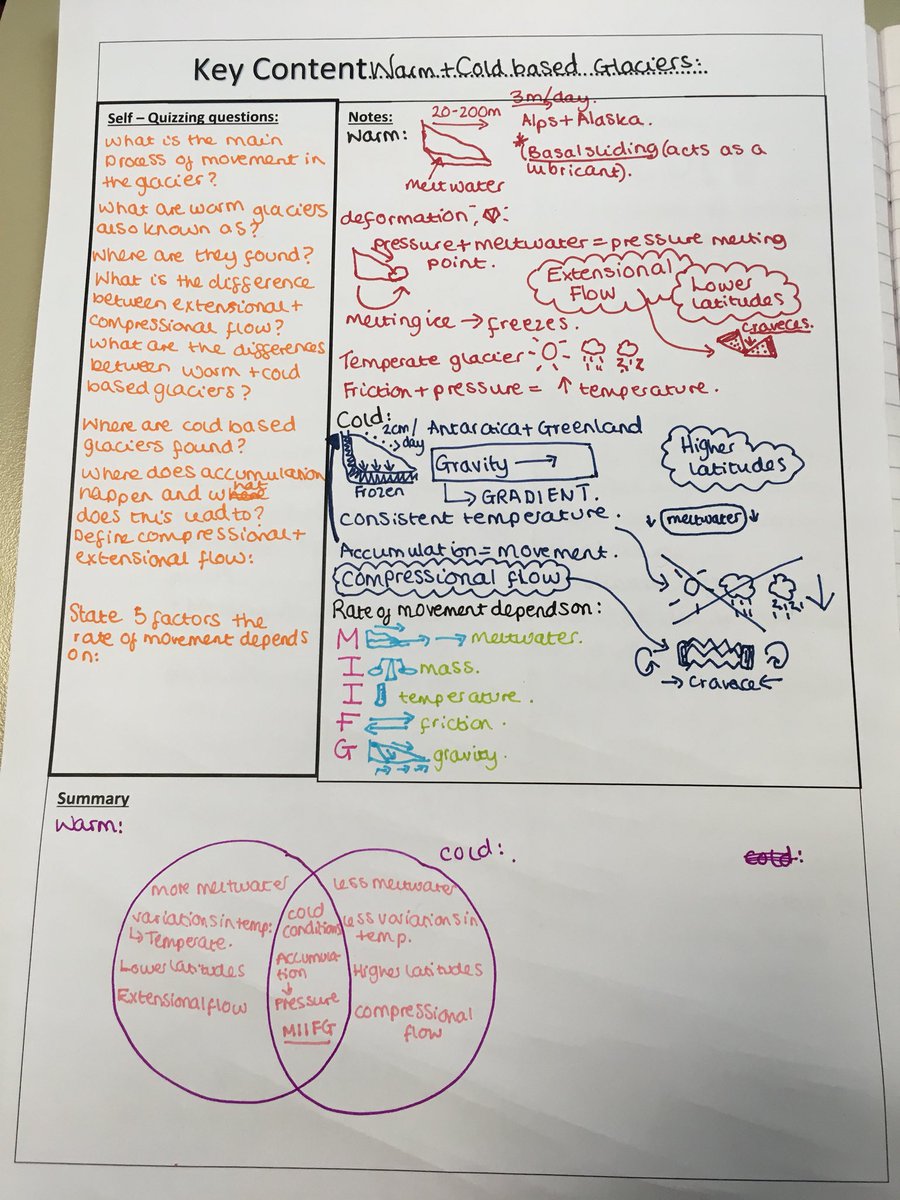 Key Content Warm + Cold based Glaciers:
Self – Quizzing questions:
What is the main
process of movement in
the glacier?
What are warm glaciers
also known as?
Where are they found?
What is the difference
between extensional +
compressional flow?
What are the differences
between warm + cold
based glaciers?
Where are cold based
glaciers found?
Where does accumulation
happen and what
does this lead to?
Define compressional +
extensional flow:
State 5 factors the
rate of movement depends
on:
Notes:
Warm:
20-200m
3m/day.
Alps + Alaska.
* (Basal sliding (acts as a
lubricant).
Meltwater
deformation;
pressure + meltwater = pressure melting
point.
Extensional
Flow
Lower
latitudes
craveces.
Melting ice → freezes.
Temperate glacier -
Friction + pressure = ↑ temperature.
Cold:
2cm/
day
Antaraica + Greenland
Gravity →
Frozen
↳ GRADIENT.
Higher
latitudes
consistent temperature.
↓ meltwater ↓
Accumulation = movement.
Compressional flow
Rate of movement depends on:
M → meltwater.
I mass.
I temperature.
F friction.
G gravity.
→ cravace ←
Summary
Warm:
Cold:
cold:
more meltwater
variations in temp:
↳ Temperate.
Lower latitudes
Extensional flow
cold
conditions
Accumula-
tion
↓
pressure
MIIFG
less meltwater
less variations in
temp.
Higher latitudes
compressional
flow